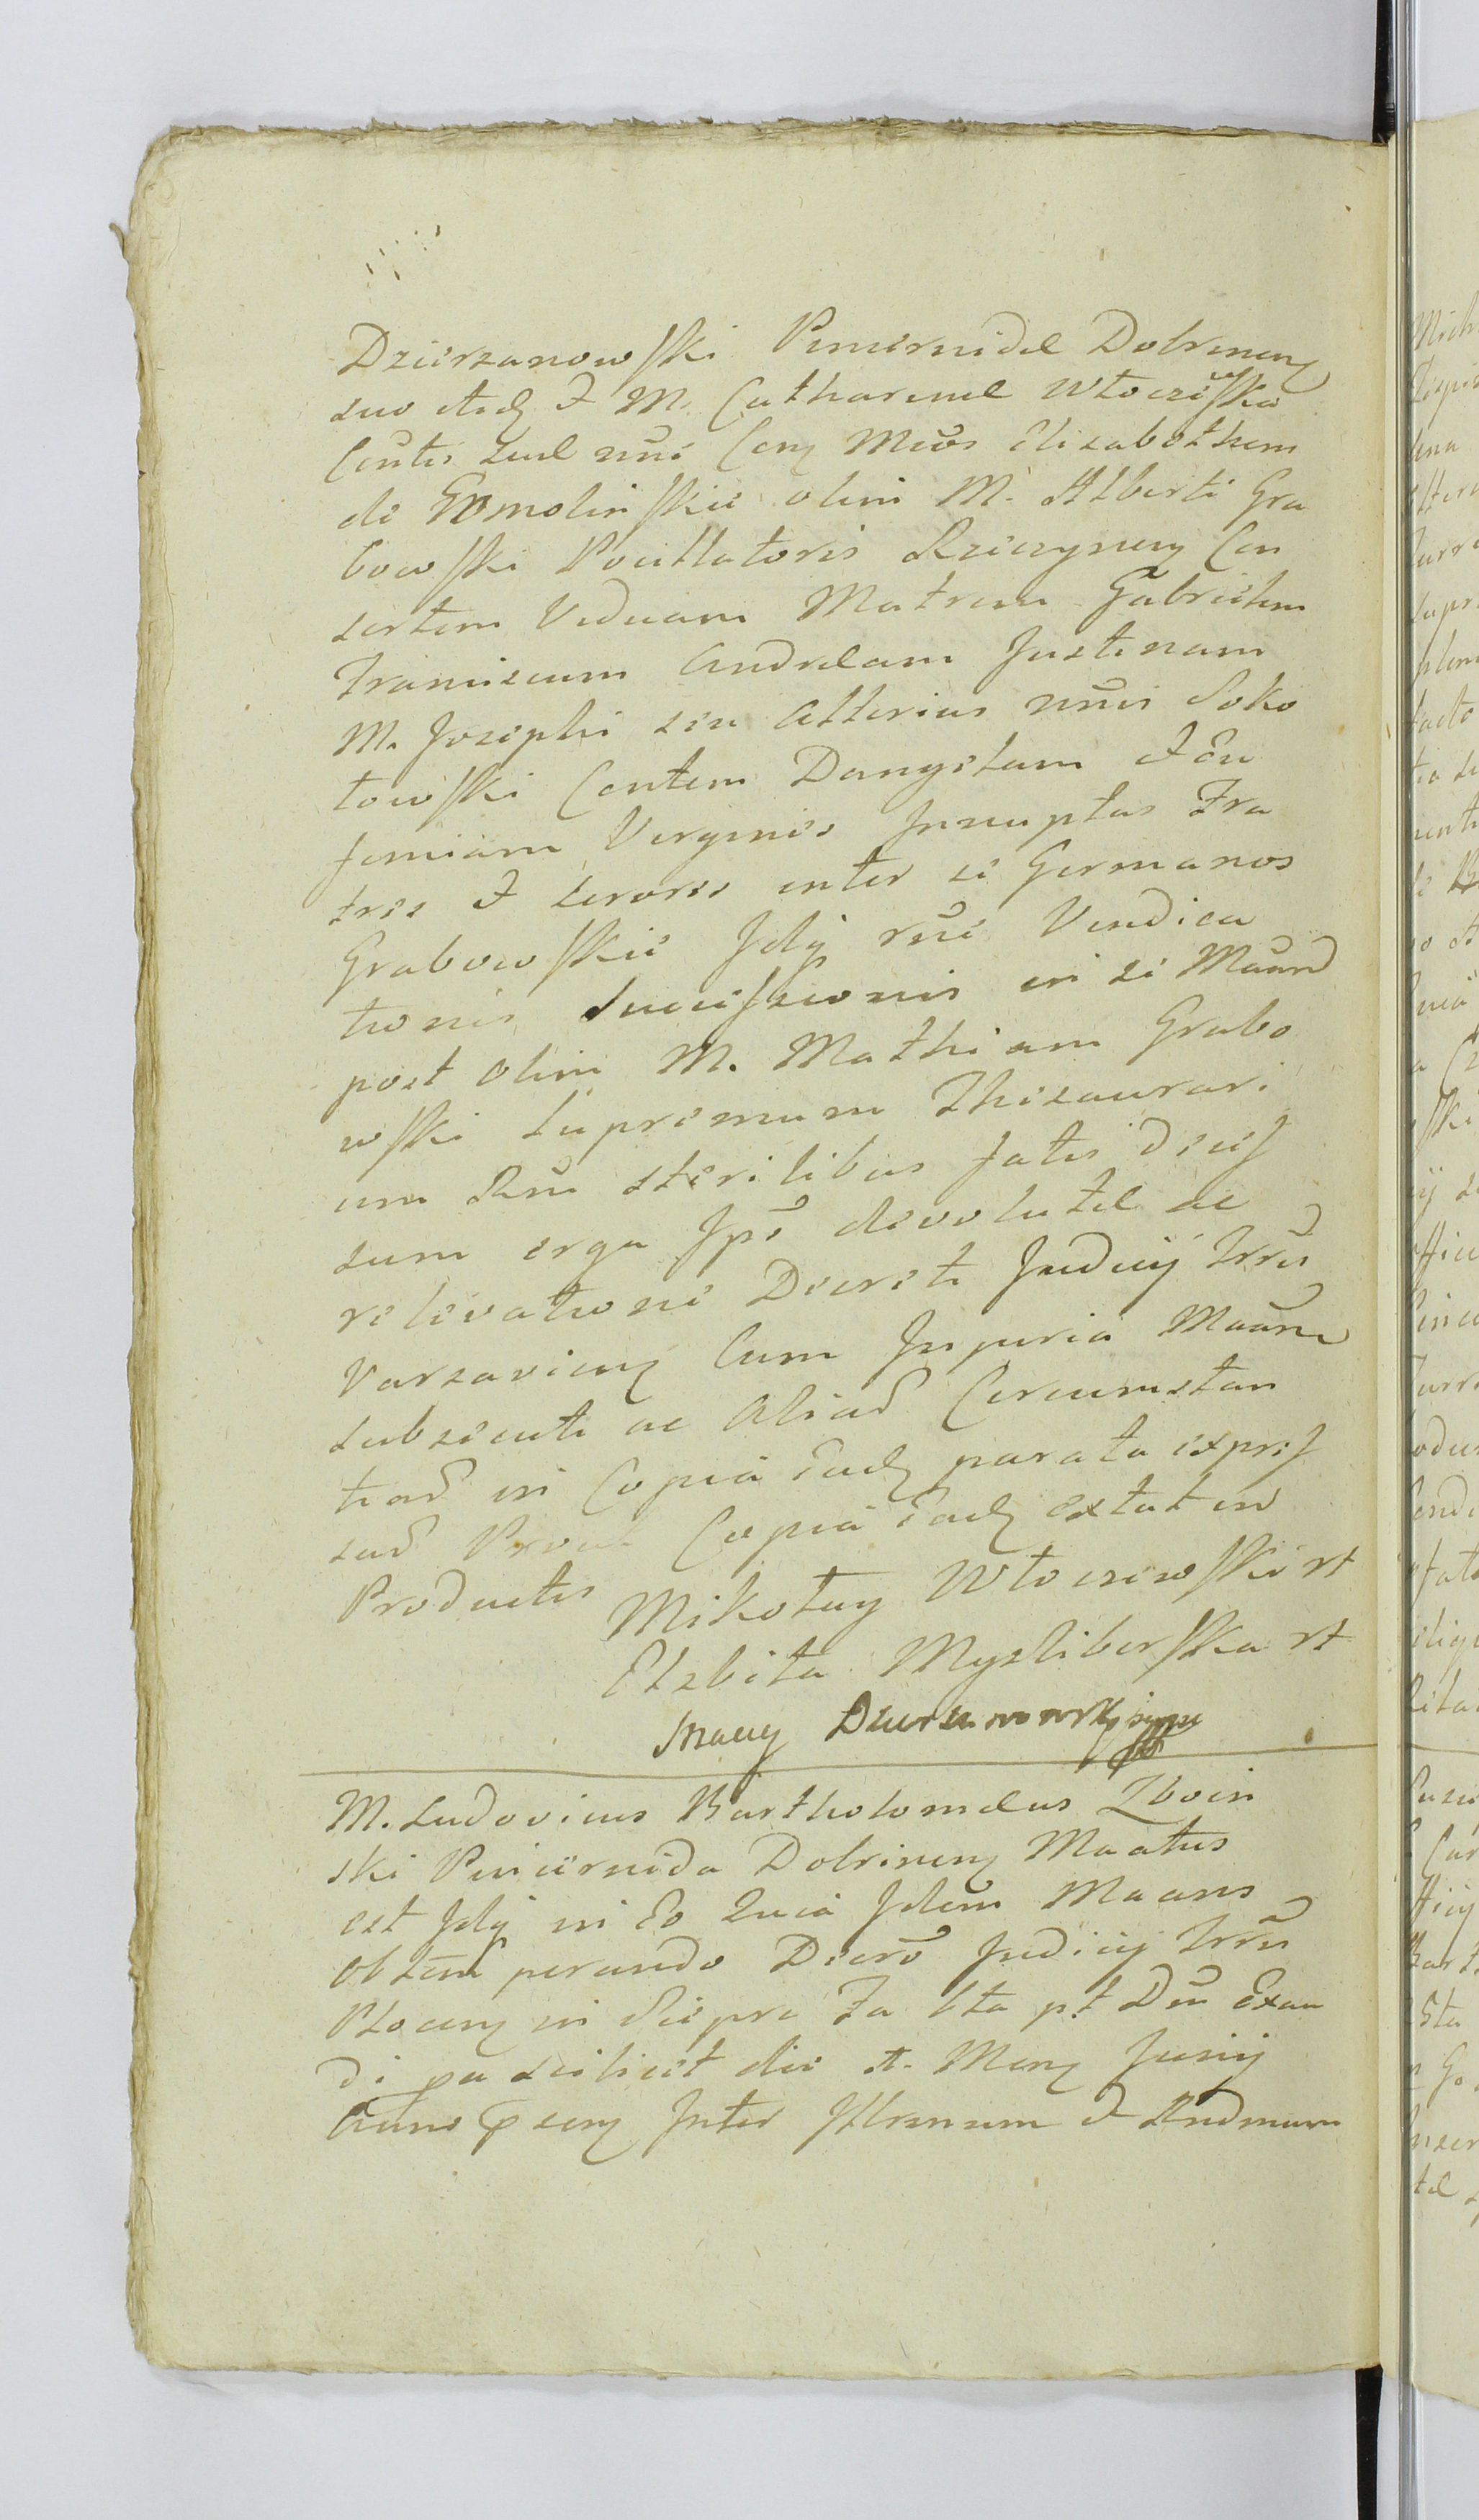 Dzierzanowski Pincernidae Dobrinen̄
suo etc̄ & M. Catharinae Włoczewska
Conte suae nn̄i Con̄ M̄eos Elisabetham
de Gomolinskie olim M. Alberti Gra
bowski Pocillatoris Rzeczycen̄ Con
sortem Viduam Matrem Gabrielem
Franciscum Andraeam Justinam
M. Josephi seu Alterius nn̄is Soko
łowski Contem Dangelam & Eu
femiam Virgines Innuptas Fra
tres & sorores inter se Germanos
Grabowskie Idq̄ rn̄e Vendica
tionis Successionis in se Maand
post olim M. Mathiam Grabo
wski Supremum Thesaurari
um Rn̄i sterilibus fatis Decess
sum erga Ips̄ devolutae ac
relevatione Decreti Judicij Trrīs
Varsavien̄ Cum Injuria Maan̄
subsecuti ac Aliad Circumstan
tiad in Copia ead̄ parata expres
sad Prout Copia ead̄ extat in
Productis
Mikołay Włoczewski rt
Elzbita Mysliberska rt
Jnacy Dzierzanowsky
M. Ludovicus Bartholomaeus Zboin
ski Pincernida Dobrinen̄ Maatus
est Idq̄ in Eo Quia Idem Maans
Obtemperando Decrō Judicij Trrīs
Plocen̄ in Siepre Fa 6ta pt Dn̄i Exau
di pa scilicet die 4. Men̄ Junij
Anno p̄sen̄ Inter Illrenum & Rndmum